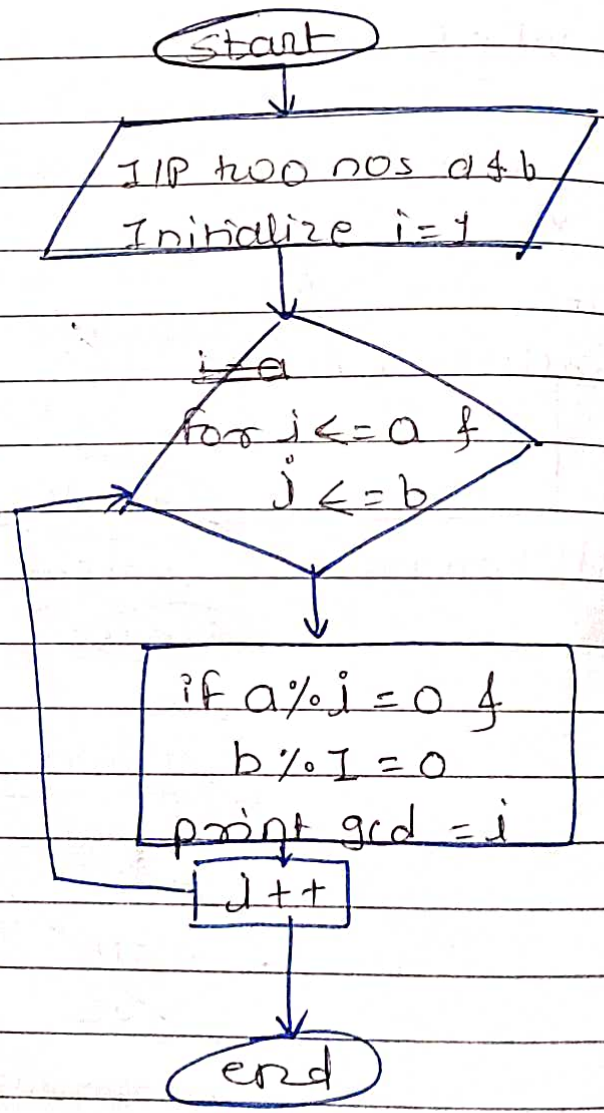 Start
I/P two nos a & b
Initialize i=1
i=a
for i<=a &
i<=b
if a%i=0 &
b%I=0
print gcd=i
i++
end